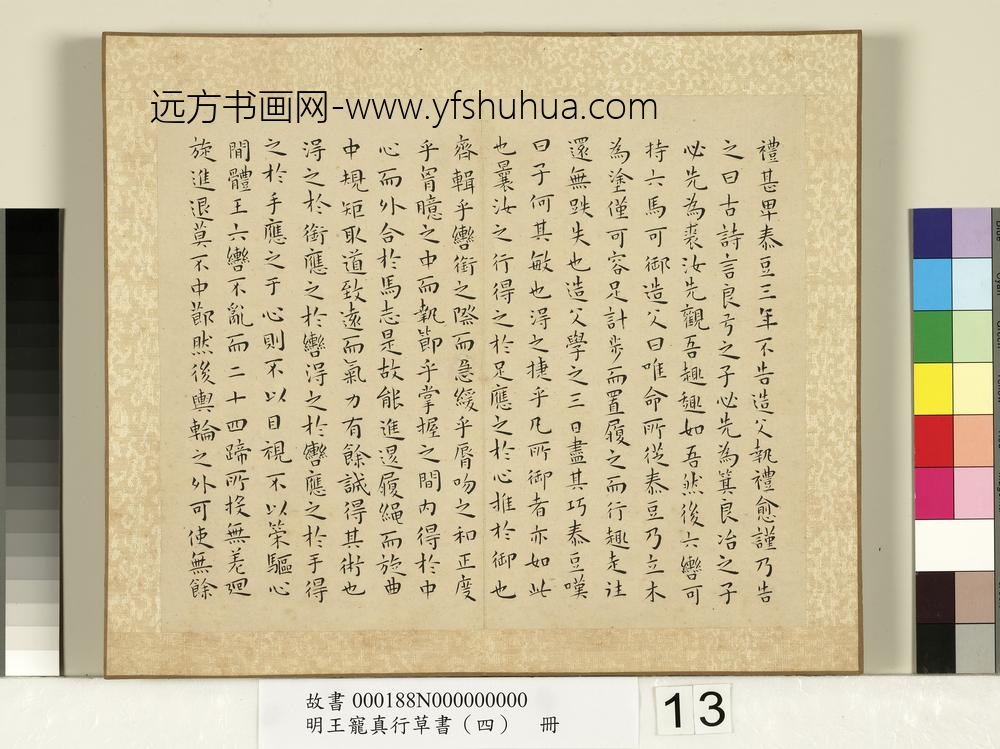 远方书画网-www.yfshuhua.com
禮甚卑泰豆三年不告造父執禮愈謹乃告
之曰古詩言良弓之子必先為箕良冶之子
必先為裘汝先觀吾趣趣如吾然後六轡可
持六馬可御造父曰唯命所從泰豆乃立木
為塗僅可容足計步而置履之而行趣走往
還無跌失也造父學之三日盡其巧泰豆嘆
曰子何其敏也得之捷乎凡所御者亦如此
也曩汝之行得之於足應之於心推於御也
齊輯乎轡銜之際而急緩乎脣吻之和正度
乎胷臆之中而執節乎掌握之間内得於中
心而外合於馬志是故能進退履繩而旋曲
中規矩取道致遠而氣力有餘誠得其術也
得之於銜應之於轡得之於轡應之於手得
之於手應之于心則不以目視不以策驅心
閒體王六轡不亂而二十四蹄所投無差廻
旋進退莫不中節然後輿輪之外可使無餘
故書 000188N000000000
明王寵真行草書（四） 冊
13